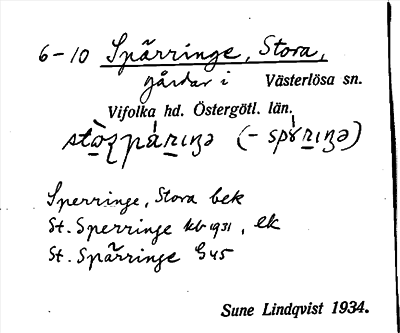 6-10 Spärringe, Stora,
gårdar i Västerlösa sn.
Vifolka hd. Östergötl. län.
Sperringe, Stora bek
St. Sperringe kb 1931, ek
St. Spärringe G45
Sune Lindqvist 1934.